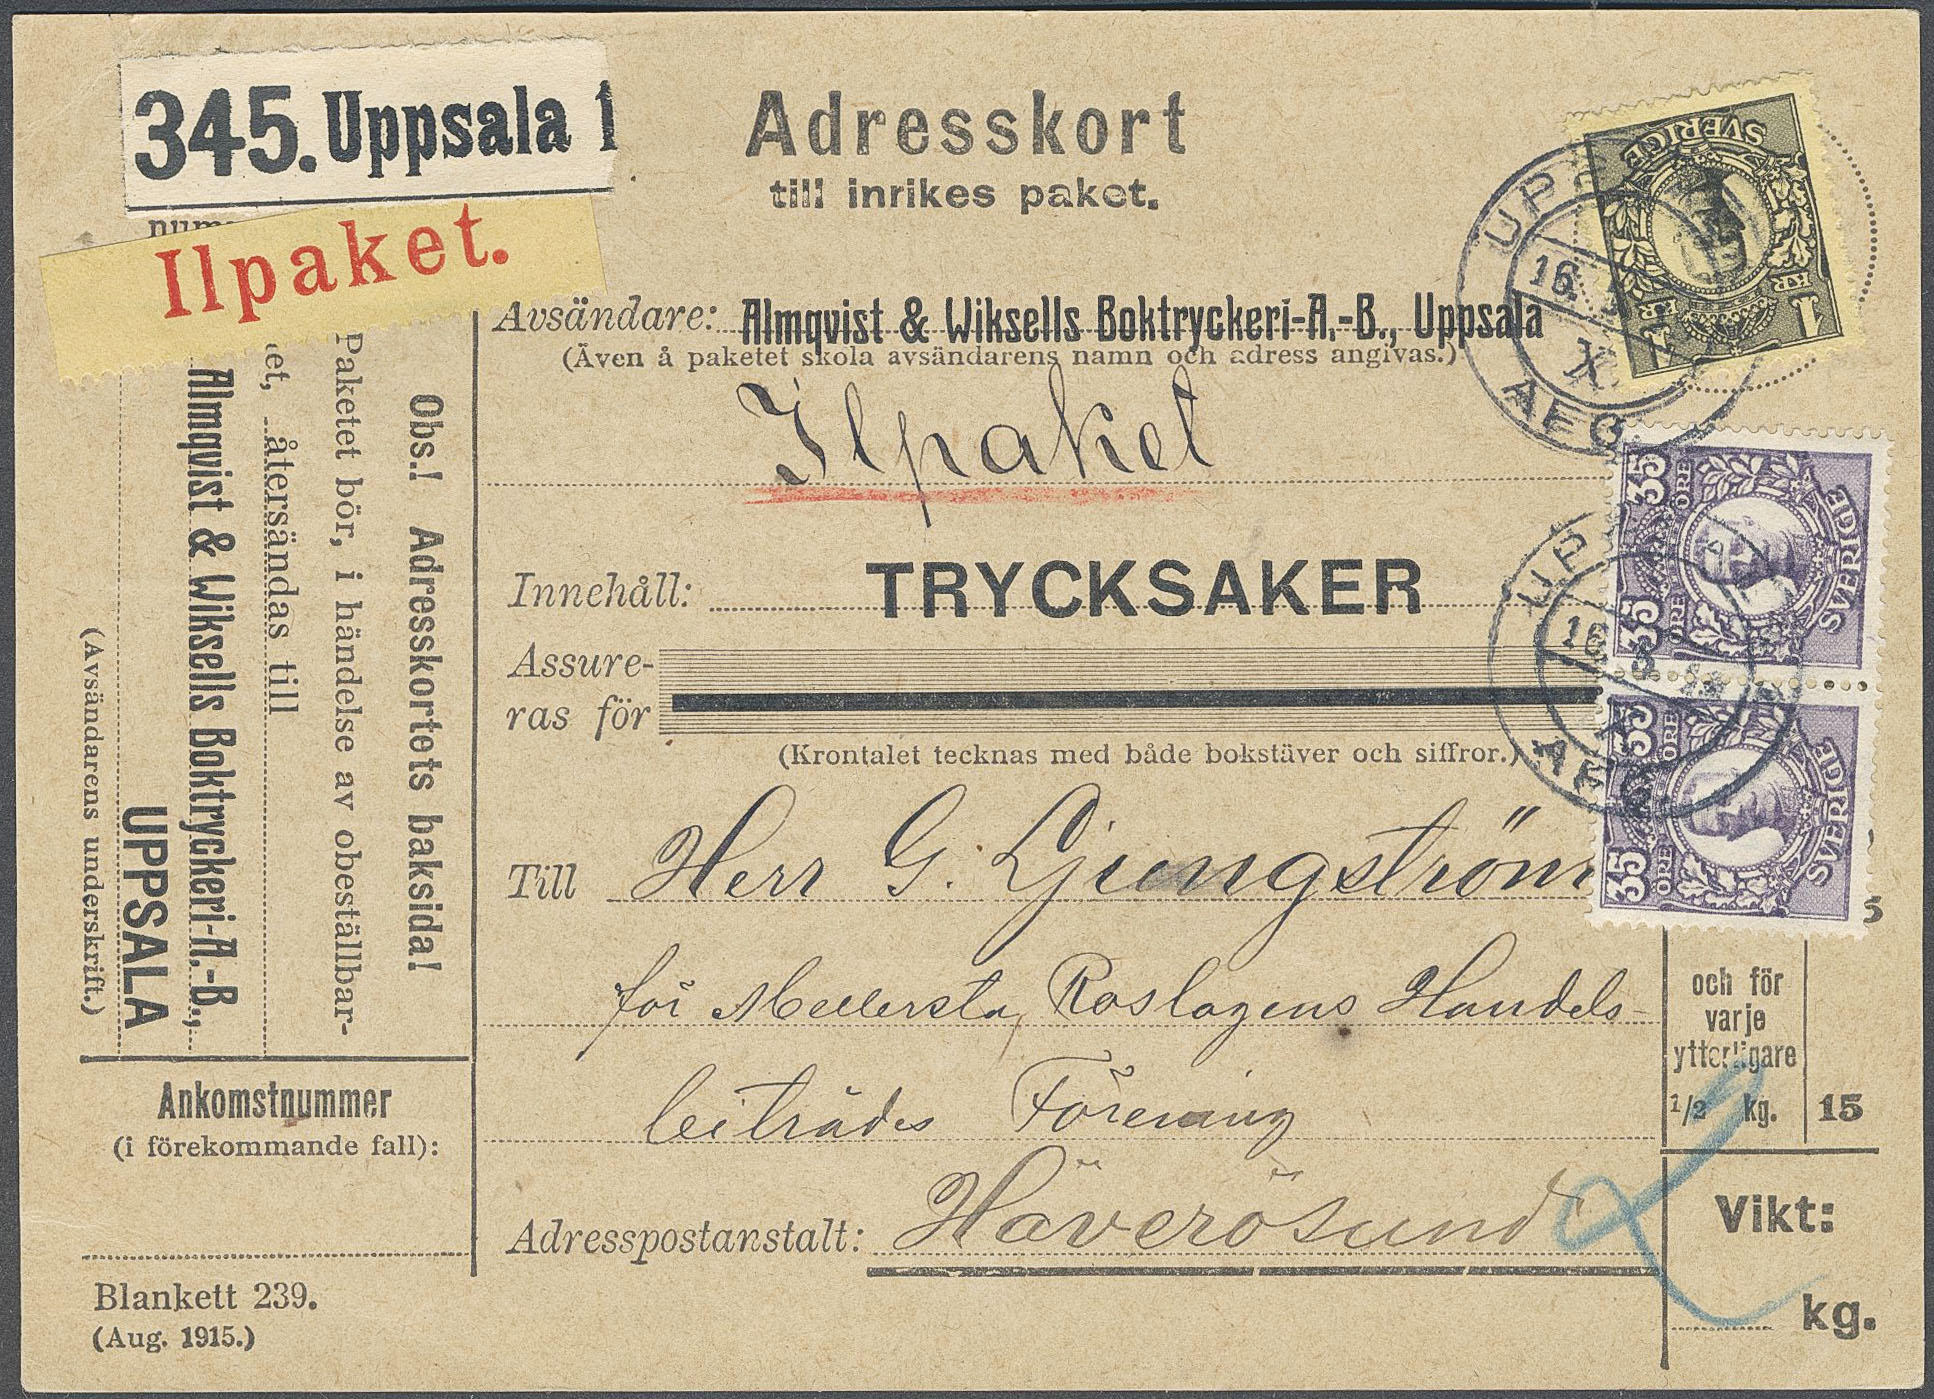 345. Uppsala 1
Ilpaket.
Adresskort
till inrikes paket.
Avsändare: Almqvist & Wiksells Boktryckeri-A.-B., Uppsala
(Även å paketet skola avsändarens namn och adress angivas.)
Ilpaket
Innehåll: TRYCKSAKER
Assure-
ras för
(Krontalet tecknas med både bokstäver och siffror.)
Till Herr G. Ljungström
för Mellersta Roslagens Handels-
biträdes Förening
Adresspostanstalt: Häverösund
Obs.! Adresskortets baksida!
Paketet bör, i händelse av obeställbar-
et, återsändas till
Almqvist & Wiksells Boktryckeri-A.-B.,
UPPSALA
(Avsändarens underskrift.)
Ankomstnummer
(i förekommande fall):
Blankett 239.
(Aug. 1915.)
1 KR
SVERIGE
UPP
16
X
AFG
35 ÖRE 35 ÖRE
SVERIGE
35 ÖRE 35 ÖRE
SVERIGE
UP
16
5
och för
varje
ytterligare
1/2 kg. 15
Vikt:
kg.